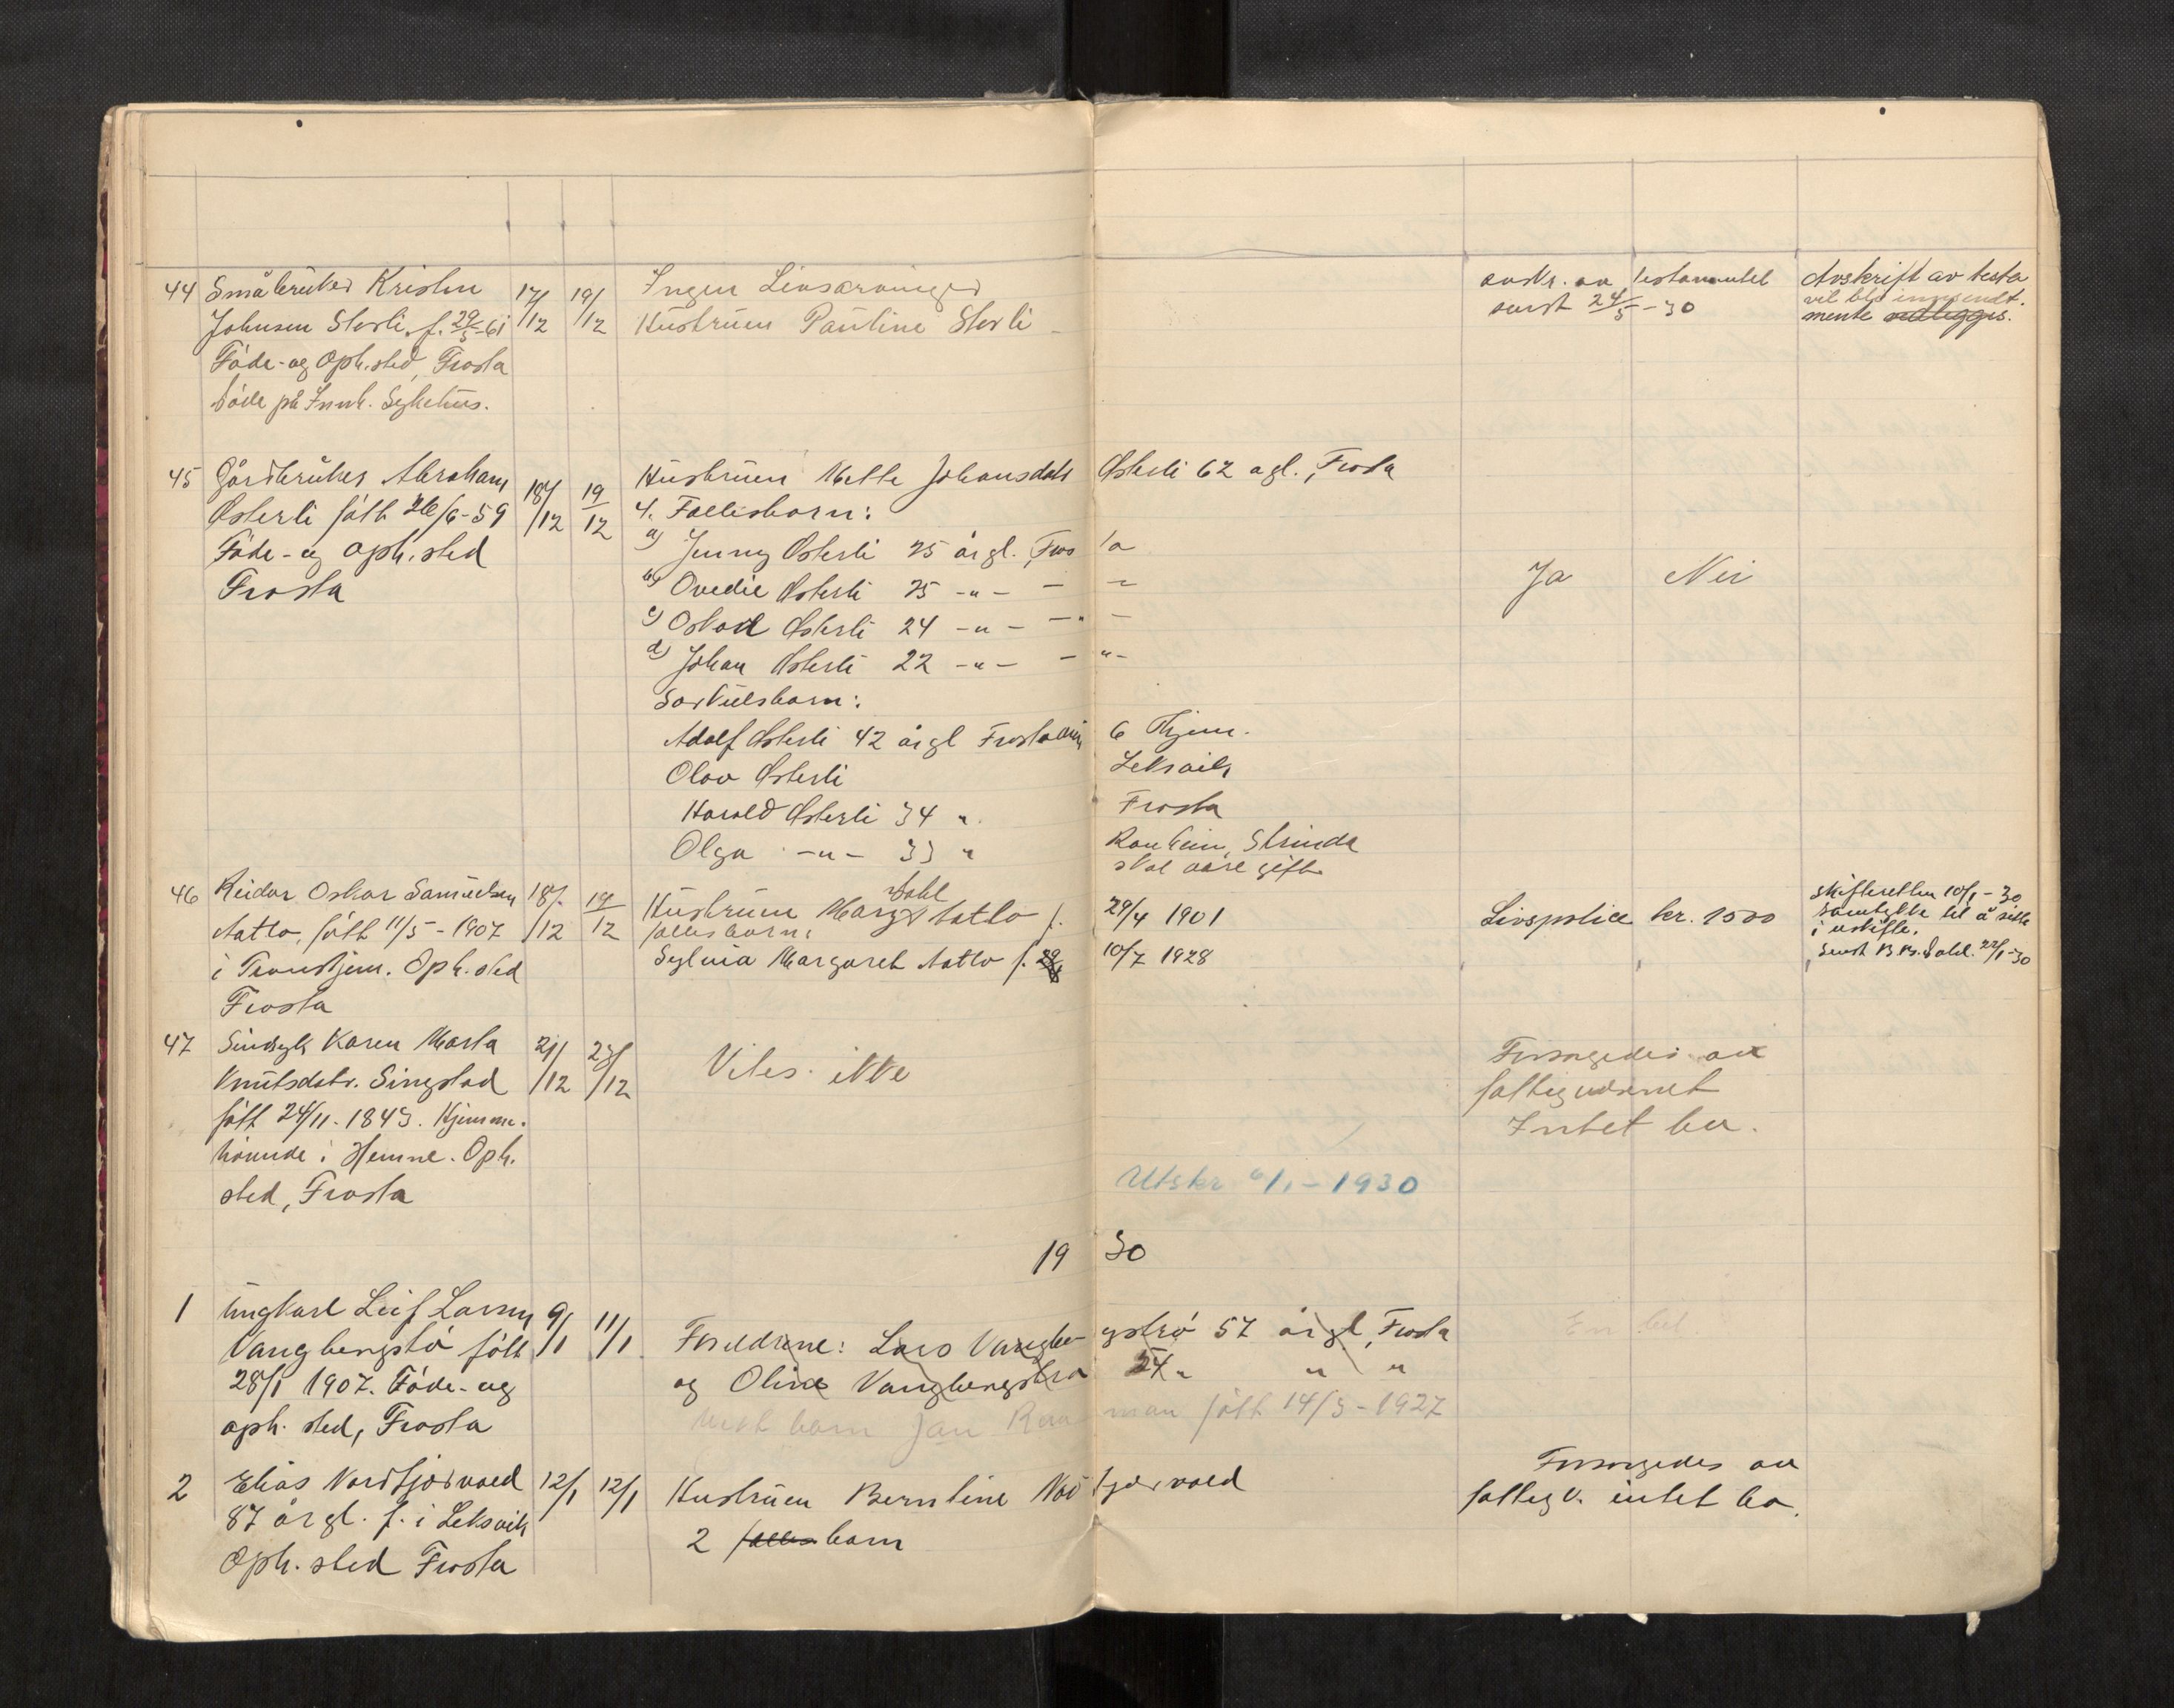 44 Småbruker Kristen 17/12 19/12 Ingen Livsarvinger
Johnsen Sterli. f. 29/3-61 Hustruen Pauline Sterli
Føde- og Oph.sted, Frosta
døde på Innh. Sykehus.
avskr. av testamentet
sendt 24/5-30
Avskrift av testa
vil bli innsendt.
mente vedlegges.
45 Gårdbruker Abraham 18/12 19/12 Hustruen Mette Johansdatr Østerli 62 å gl., Frosta
Østerli født 26/6-59 4. Fællesbarn:
Føde- og oph. sted a) Jenny Østerli 25 år gl. Frosta
Frosta b) Ovedie Østerli 25 -"- - -
Ja Nei
c) Oskar Østerli 24 -"- -"-
d) Johan Østerli 22 -"- -"-
Særkulsbarn:
Adolf Østerli 42 år gl 6 Thjem.
Olav Østerli Leksvik
Harald Østerli 34 " Frosta
Olga -"- 33 " Ranheim, Strinda
skal være gift
46 Reidar Oskar Samuelsen 18/12 19/12 Hustruen Marg. Aatlo f. 29/4 1901
Dahl
Aatlo, født 11/5-1907 fællesbarn:
i Trondhjem. Oph. sted Sylvia Margaret Aatlo f. 10/7 1928
Frosta
Livspolice kr. 1500
Skifteretten 10/1-30
samtykke til å sitte
i uskifte.
Sendt 22/1-30
47 Sindsyk Karen Marta 21/12 23/12 Vites ikke
Knutsdatr. Singstad
født 24/11-1843. Hjemme-
hørende i Hemne. Oph.
sted, Frosta
Forsørgedes av
fattigvæsenet
Intet bo.
Utskr 6/1-1930
19 30
1 Ungkarl Leif Larsen 9/1 11/1 Foreldrene: Lars Vangbergstrø 57 år gl, Frosta
Vangbergstø født og Oline Vangbergstrø 54 " " "
28/1 1907. Føde- og barn Jan født 14/3-1927
oph. sted, Frosta
2 Elias Nordfjorvald 12/1 12/1 Hustruen Berntine Nordfjorvald
87 år gl. f. i Leksvik 2 fælles barn
Oph. sted Frosta
Forsørgedes av
fattigv. intet bo.